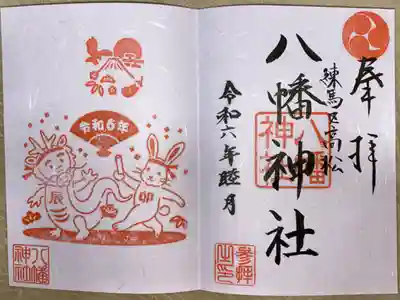 奉拝
練馬区高松
八幡神社
八幡神社
令和六年睦月
参拝之印
令和6年
辰
卯
八幡神社